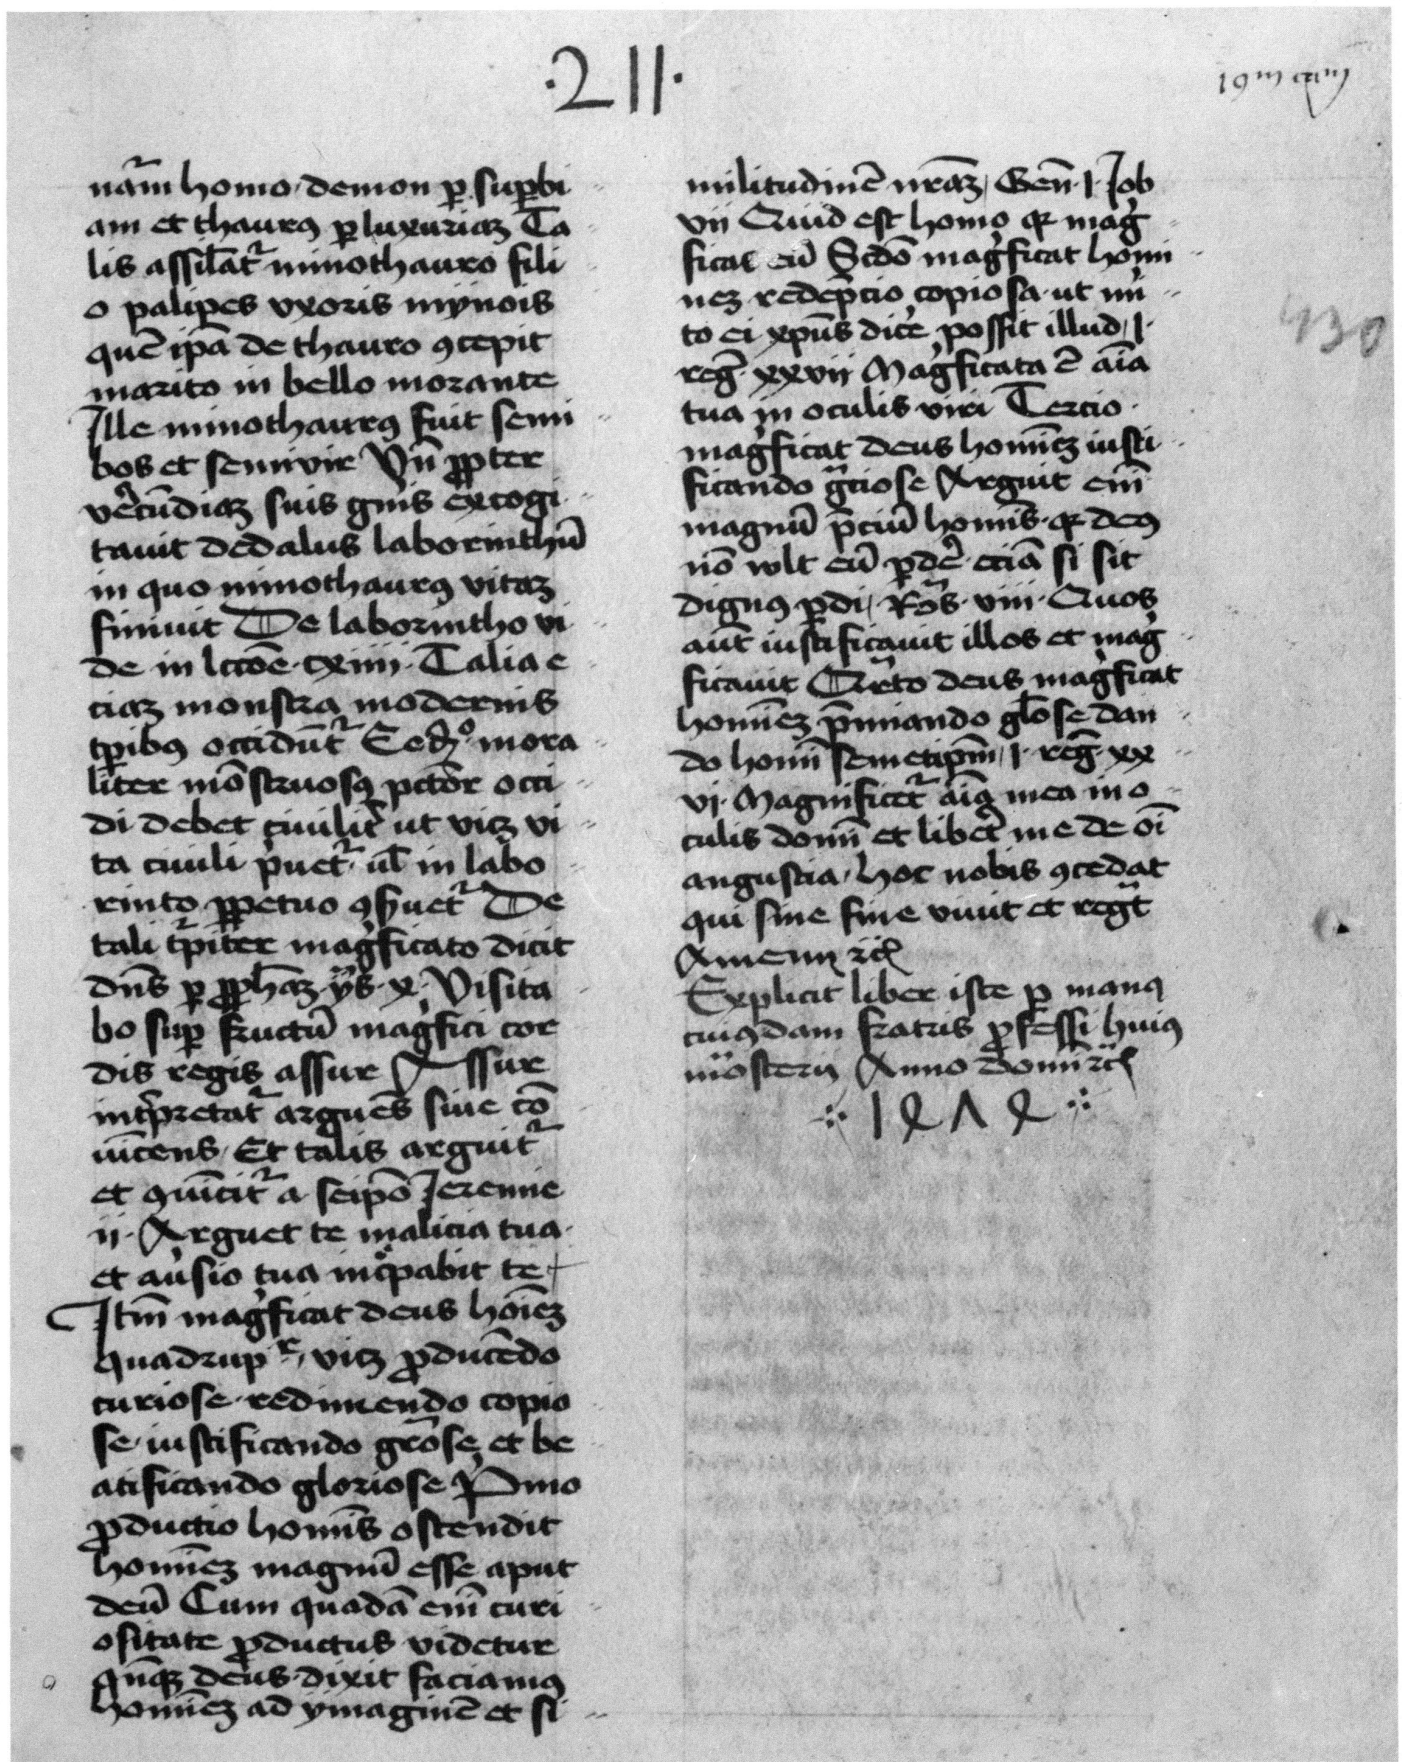 ·211·
19m
nam homo demon per superbi
am et thaurus per luxuriam Ta
lis assimilatur minothauro fili
o palipes vxoris mynois
quē ipā de thauro ꝯcepit
marito in bello morante
Ille minothaurꝰ fuit semi
bos et semivir Vn̄ ꝓpter
vecūdiaꝫ suis gnīs excogi
tauit dedalus laborinthū
in quo minothaurꝰ vitaꝫ
finiuit De laborintho vi
de in lccōe cxiiii Talia e
ciaꝫ monstra modernis
tꝑibꝰ occidūt᷑ mora
liter mōstruosꝰ pctōr occi
di debet ciuilit᷑ ut vicꝫ vi
ta ciuili p̄uet᷑ ul̄ in labo
rinto ꝑpetuo ꝯẜuet᷑ De
tali t᷑piter mag̍ficato dicit
dn̄s ꝑ ꝓph̄aꝫ ys. x. Visita
bo suꝑ fructū mag̍fici cor
dis regis assur Assur
int̍pretat᷑ arguēs siue cō
uīcens Et talis arguit᷑
et ꝯuīcit᷑ a seipō Jeremie
ii. Arguet te malicia tua
et au̍sio tua īc̍pabit te
Itm̄ mag̍ficat deus hoīeꝫ
quadrupr vicꝫ ꝓducēdo
curiose redimendo copio
se iustificando grōse et be
atificando gloriose P̍mo
ꝓductio homīs ostendit
homīeꝫ magnū esse aput
deū Cum quadā enī curi
ositate ꝓductus videtur
deus dixit faciamꝰ
homīeꝫ ad ymaginē et si
militudinē nr̄aꝫ Gen̄ 1 Job
vii Quid est homo qꝛ mag̍
ficas eū Scdō mag̍ficat homi
neꝫ redēpcio copiosa ut mi̍
to ei xp̄us dic̄e possit illud 1
reḡ xxvii Mag̍ficata ē āīa
tua in oculis viri Tercio
mag̍ficat deus homīeꝫ iusti
ficando gͣciose Arguit enī
magnū p̄ciū homīs qꝛ deꝰ
nō wlt eū ꝑde᷑ eciā si sit
dignꝰ ꝑdi Ros viii Quos
aūt iustificauit illos et mag̍
ficauit Qͣrto deus mag̍ficat
homīeꝫ p̄miando glōse dan
do homī semetipm̄ 1 reḡ xx
vi Magnificet᷑ āīa mea in o
culis domī et libet᷑ me de oī
angustia hoc nobis ꝯcedat
qui sine fine viuit et regͣt
Amenn ꝛc̄
Explicit liber iste ꝑ manꝰ
cuiꝰdam fratris ꝓfessi huiꝰ
mͦosterii Anno domī ꝛc̄
1ꝝΛꝝ
430